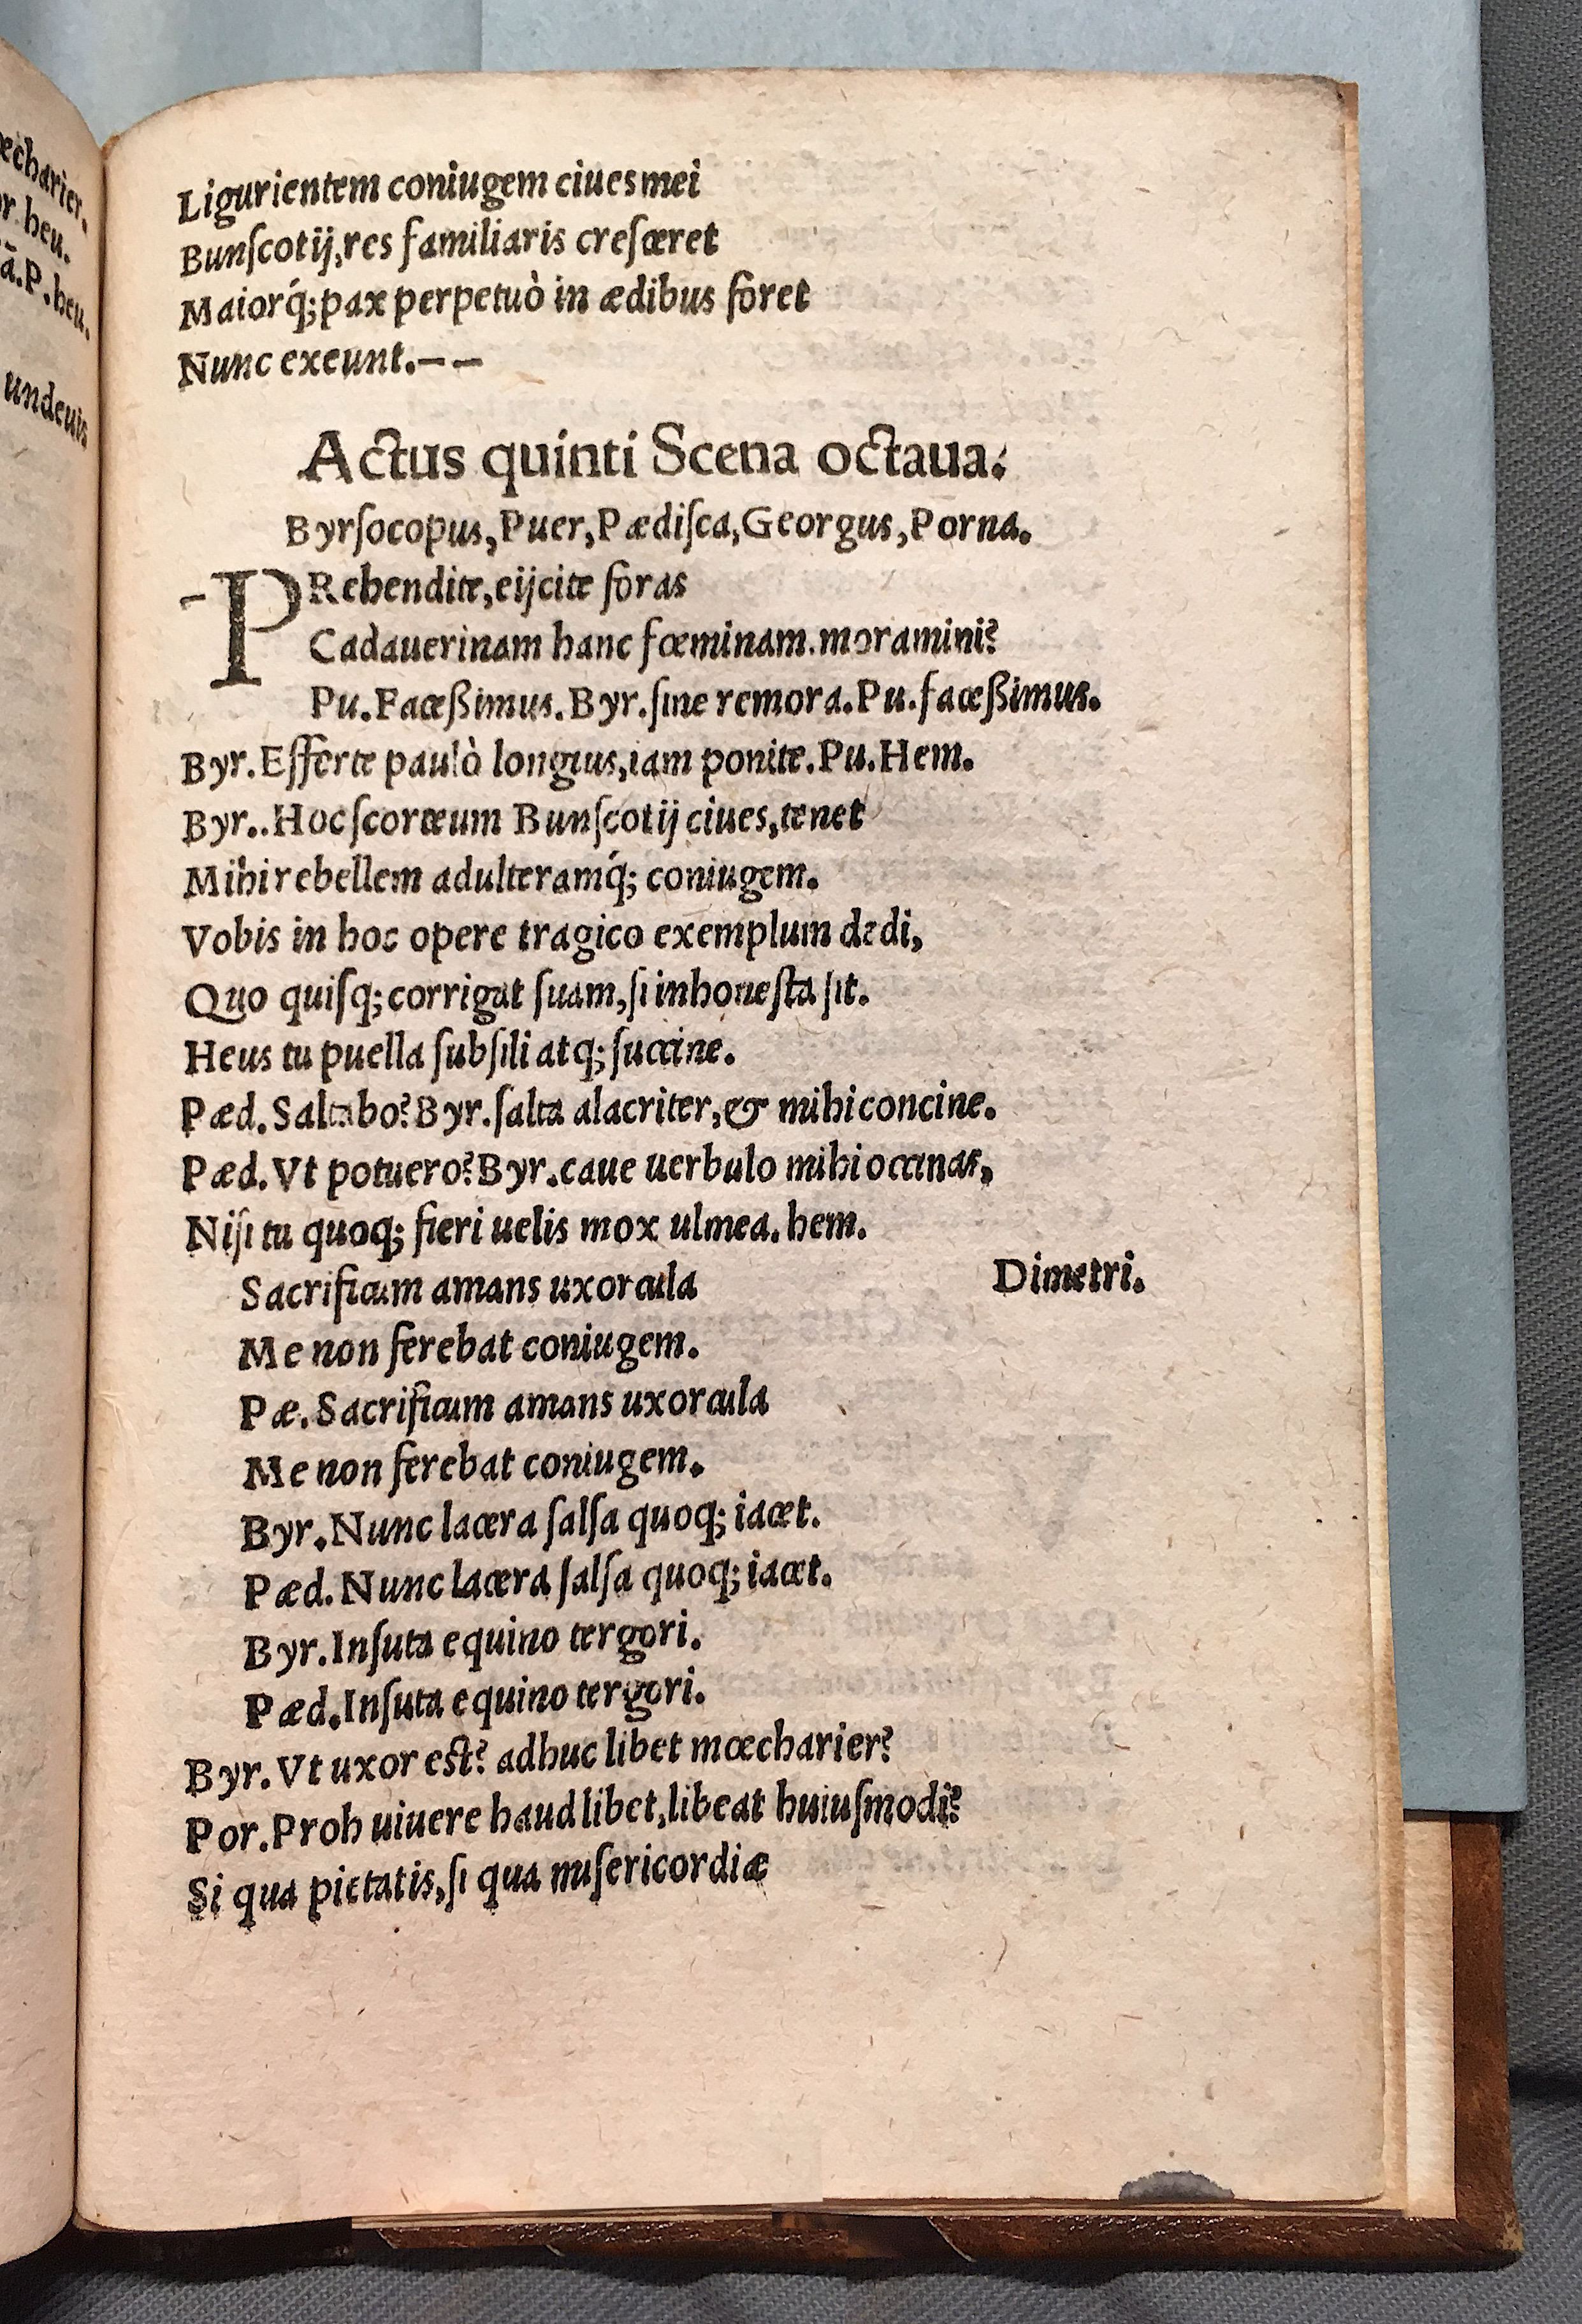 æcharier.
or.heu.
ā.P.heu.
undeuis
Ligurientem coniugem ciues mei
Bunſcotij,res familiaris creſceret
Maiorq́;pax perpetuò in ædibus foret
Nunc exeunt.— —
Actus quinti Scena octaua.
Byrſocopus,Puer,Pædiſca,Georgus,Porna.
-PRehendite,eijcite foras
Cadauerinam hanc fœminam.moramini?
Pu.Faceßimus.Byr.ſine remora.Pu.faceßimus.
Byr.Efferte paulò longius,iam ponite.Pu.Hem.
Byr..Hoc ſcorteum Bunſcotij ciues,tenet
Mihi rebellem adulteramq́; coniugem.
Vobis in hoc opere tragico exemplum dedi,
Quo quiſq; corrigat ſuam,ſi inhoneſta ſit.
Heus tu puella ſubſili atq; ſuccine.
Pæd.Saltabo?Byr.ſalta alacriter,& mihi concine.
Pæd.Vt potuero?Byr.caue uerbulo mihi occinas,
Niſi tu quoq; fieri uelis mox ulmea.hem.
Sacrificum amans uxorcula Dimetri.
Me non ferebat coniugem.
Pæ.Sacrificum amans uxorcula
Me non ferebat coniugem.
Byr.Nunc lacera ſalſa quoq; iacet.
Pæd.Nunc lacera ſalſa quoq; iacet.
Byr.Inſuta equino tergori.
Pæd.Inſuta equino tergori.
Byr.Vt uxor eſt? adhuc libet mœcharier?
Por.Proh uiuere haud libet,libeat huiuſmodi?
Si qua pietatis,ſi qua miſericordiæ